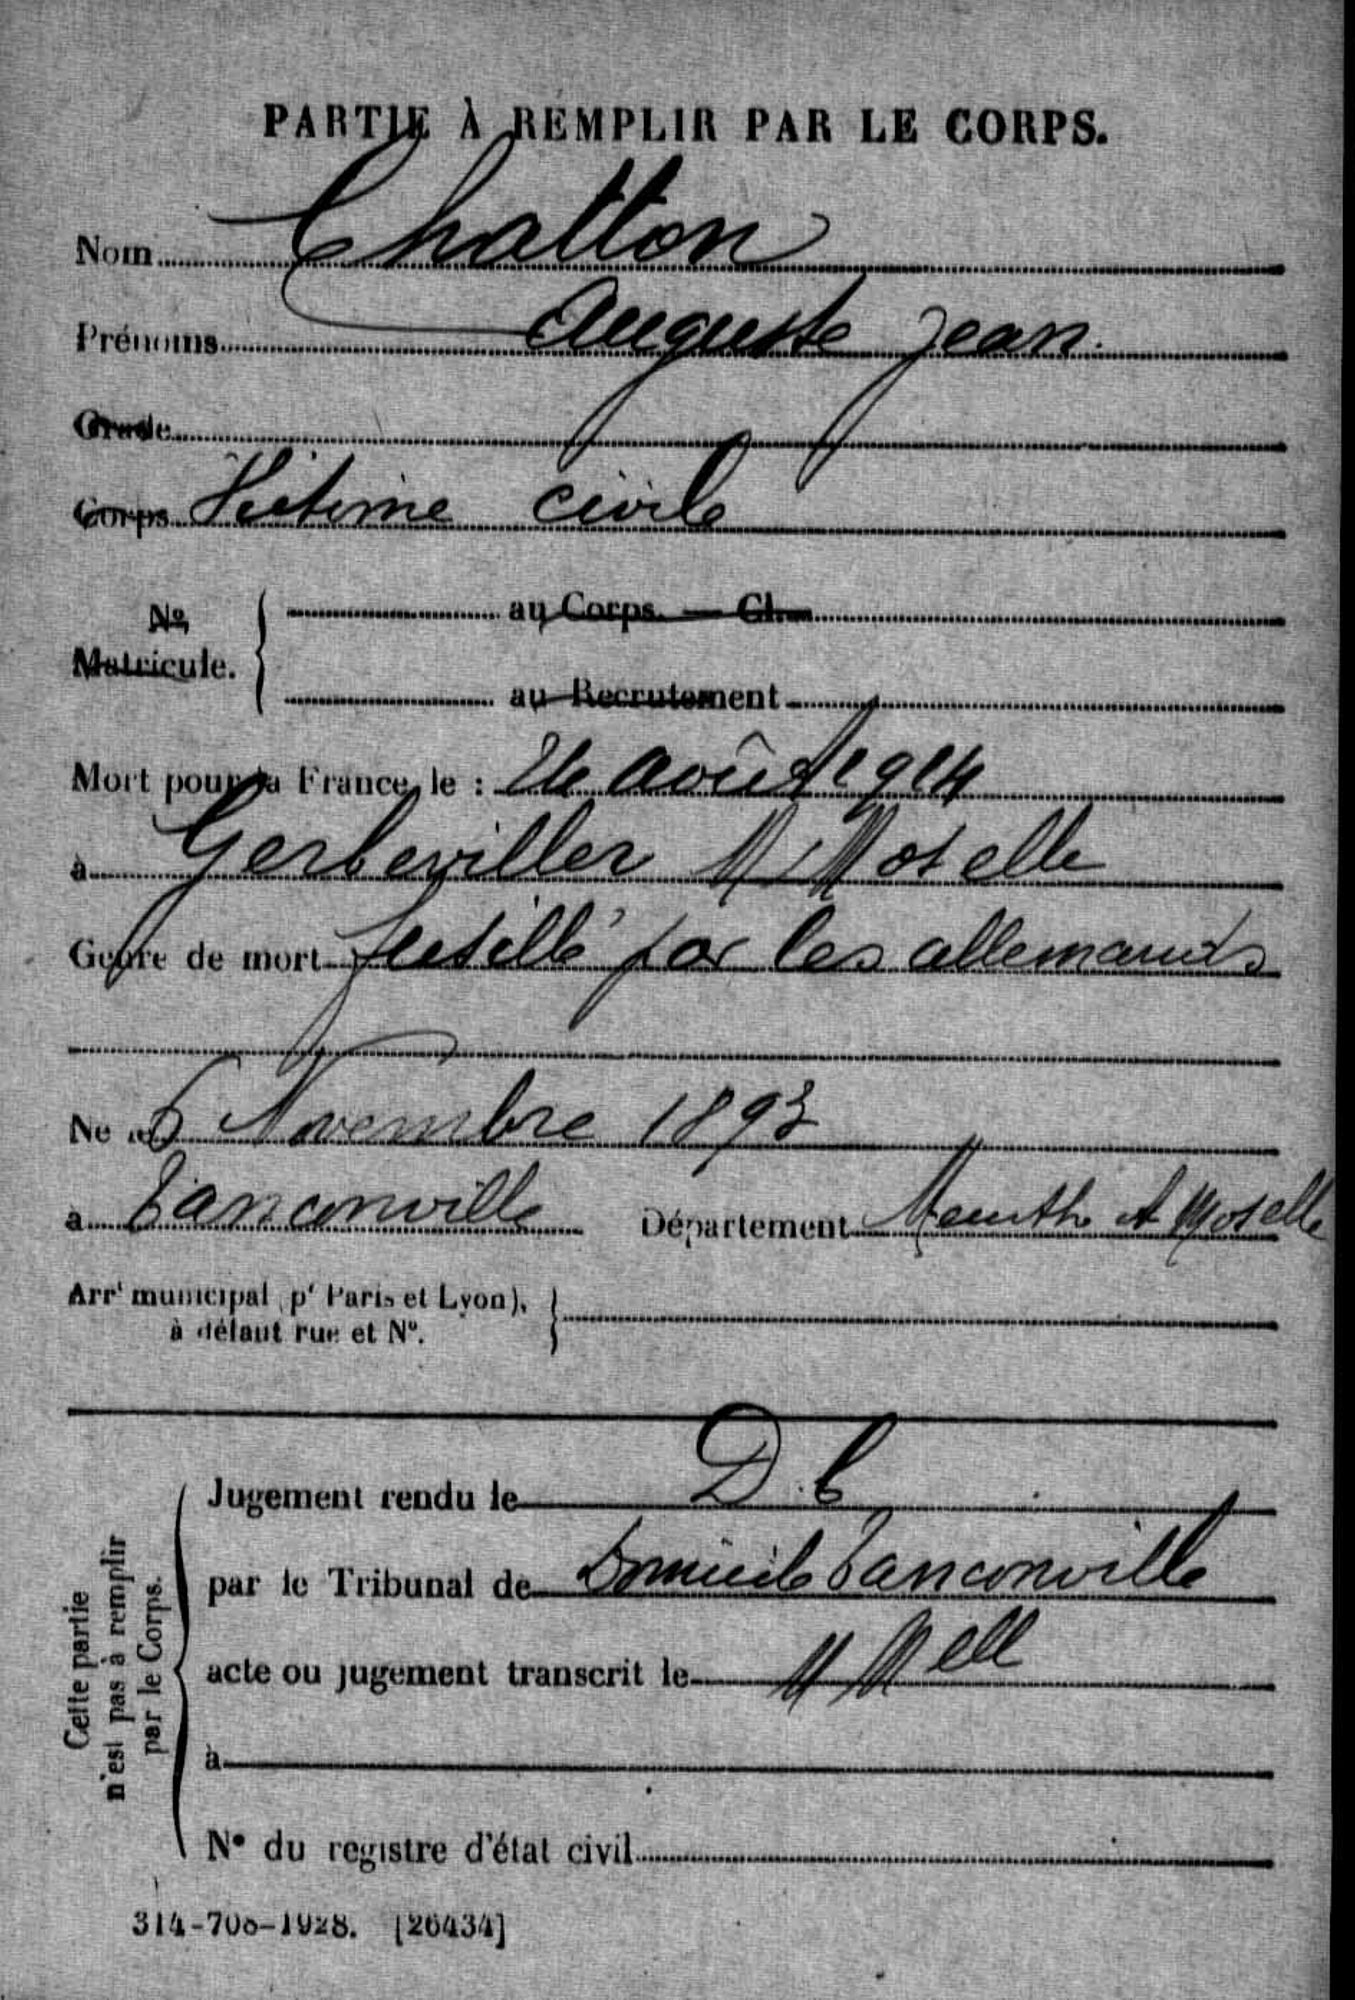 PARTIE À REMPLIR PAR LE CORPS.
Nom Chatton
Prénoms Auguste Jean.
Grade
Corps Victime civile
No
Matricule.
au Corps. — Cl.
au Recrutement
Mort pour la France le : 24 août 1914
à Gerbeviller M Moselle
Genre de mort fusillé par les allemands
Né le 6 Novembre 1893
à Tanconville Département Meurthe et Moselle
Arrt municipal (pr Paris et Lyon),
à défaut rue et N°.
Cette partie
n'est pas à remplir
par le Corps.
Jugement rendu le D. C
par le Tribunal de Domicile Tanconville
acte ou jugement transcrit le M Mell
à
N° du registre d'état civil
314-708-1928. [26434]